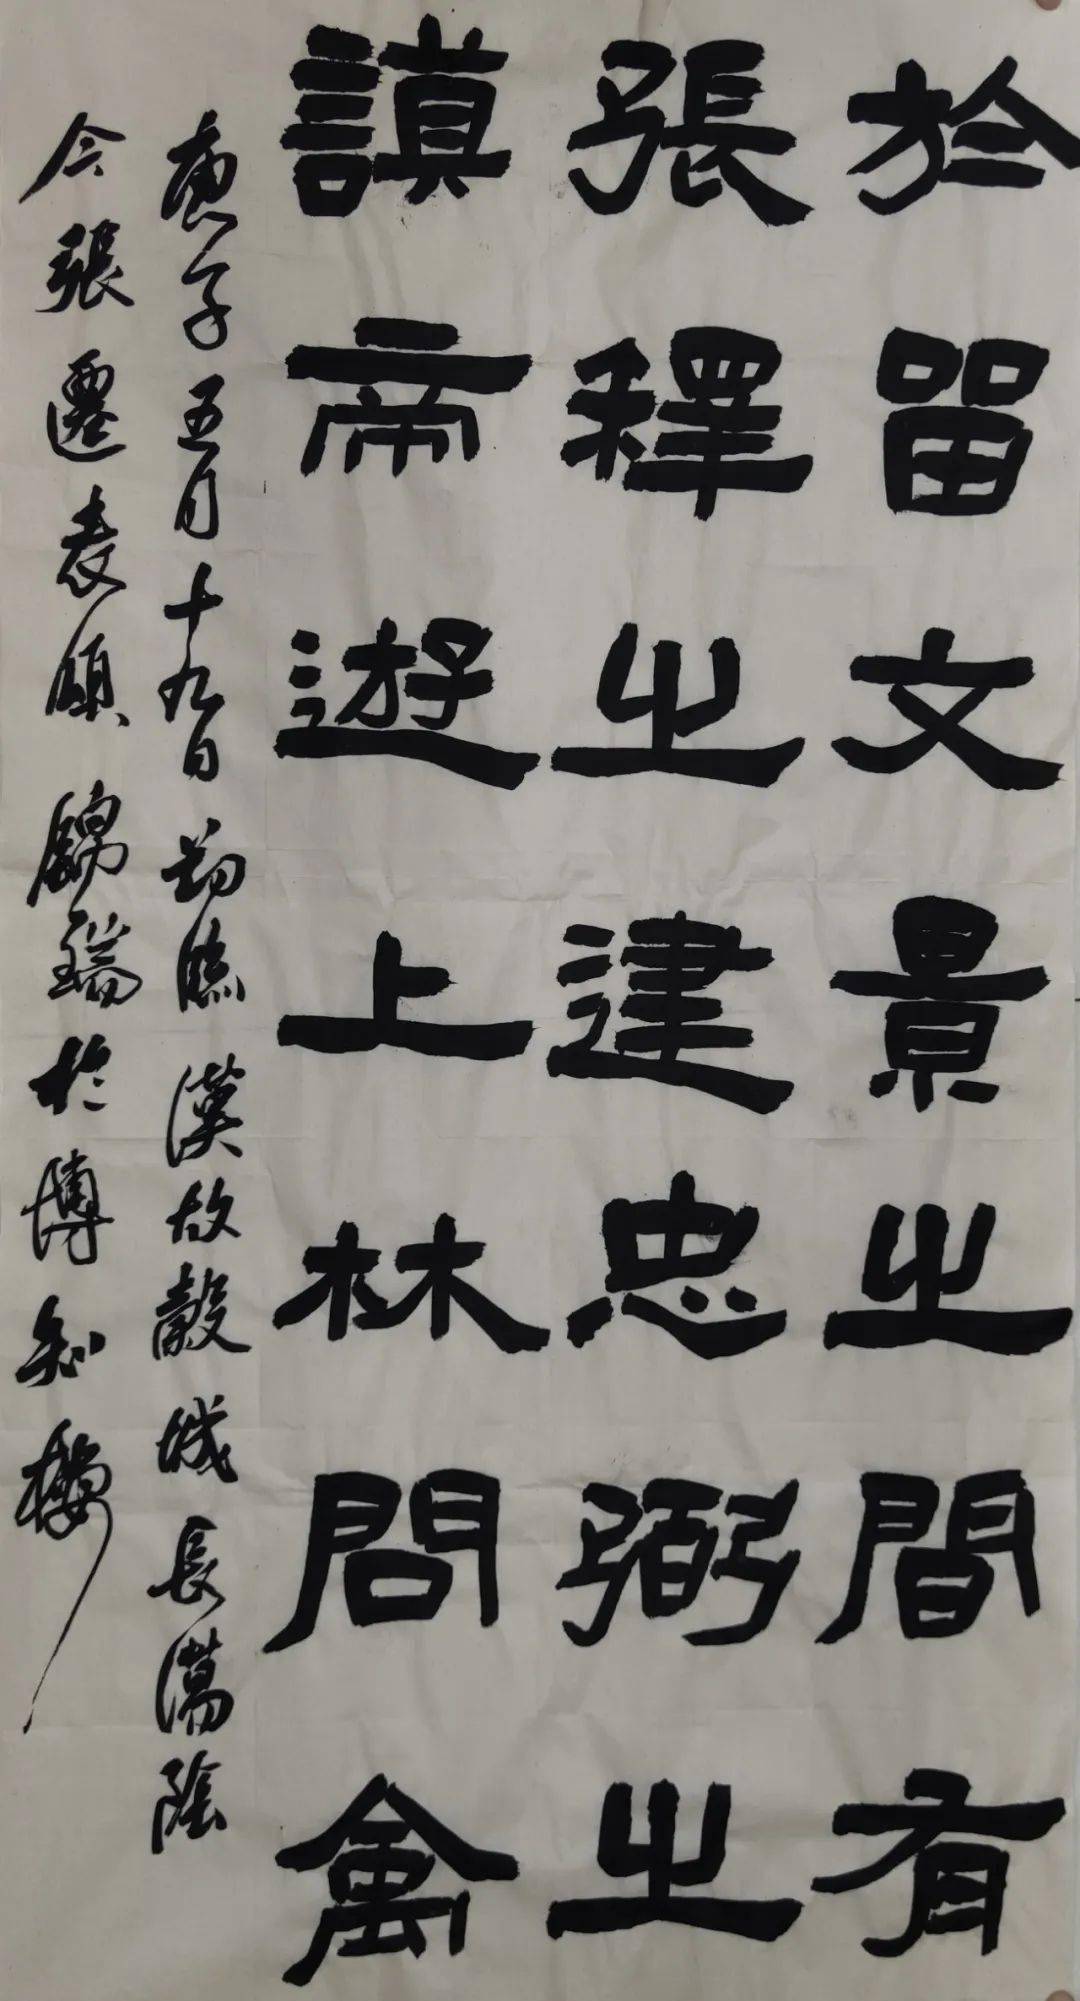 於留文景之間有
張釋之建忠弼之
謨帝遊上林問禽
庚子五月十九日節臨漢故穀城長蕩陰
令張遷表頌錦瑞於博知樓